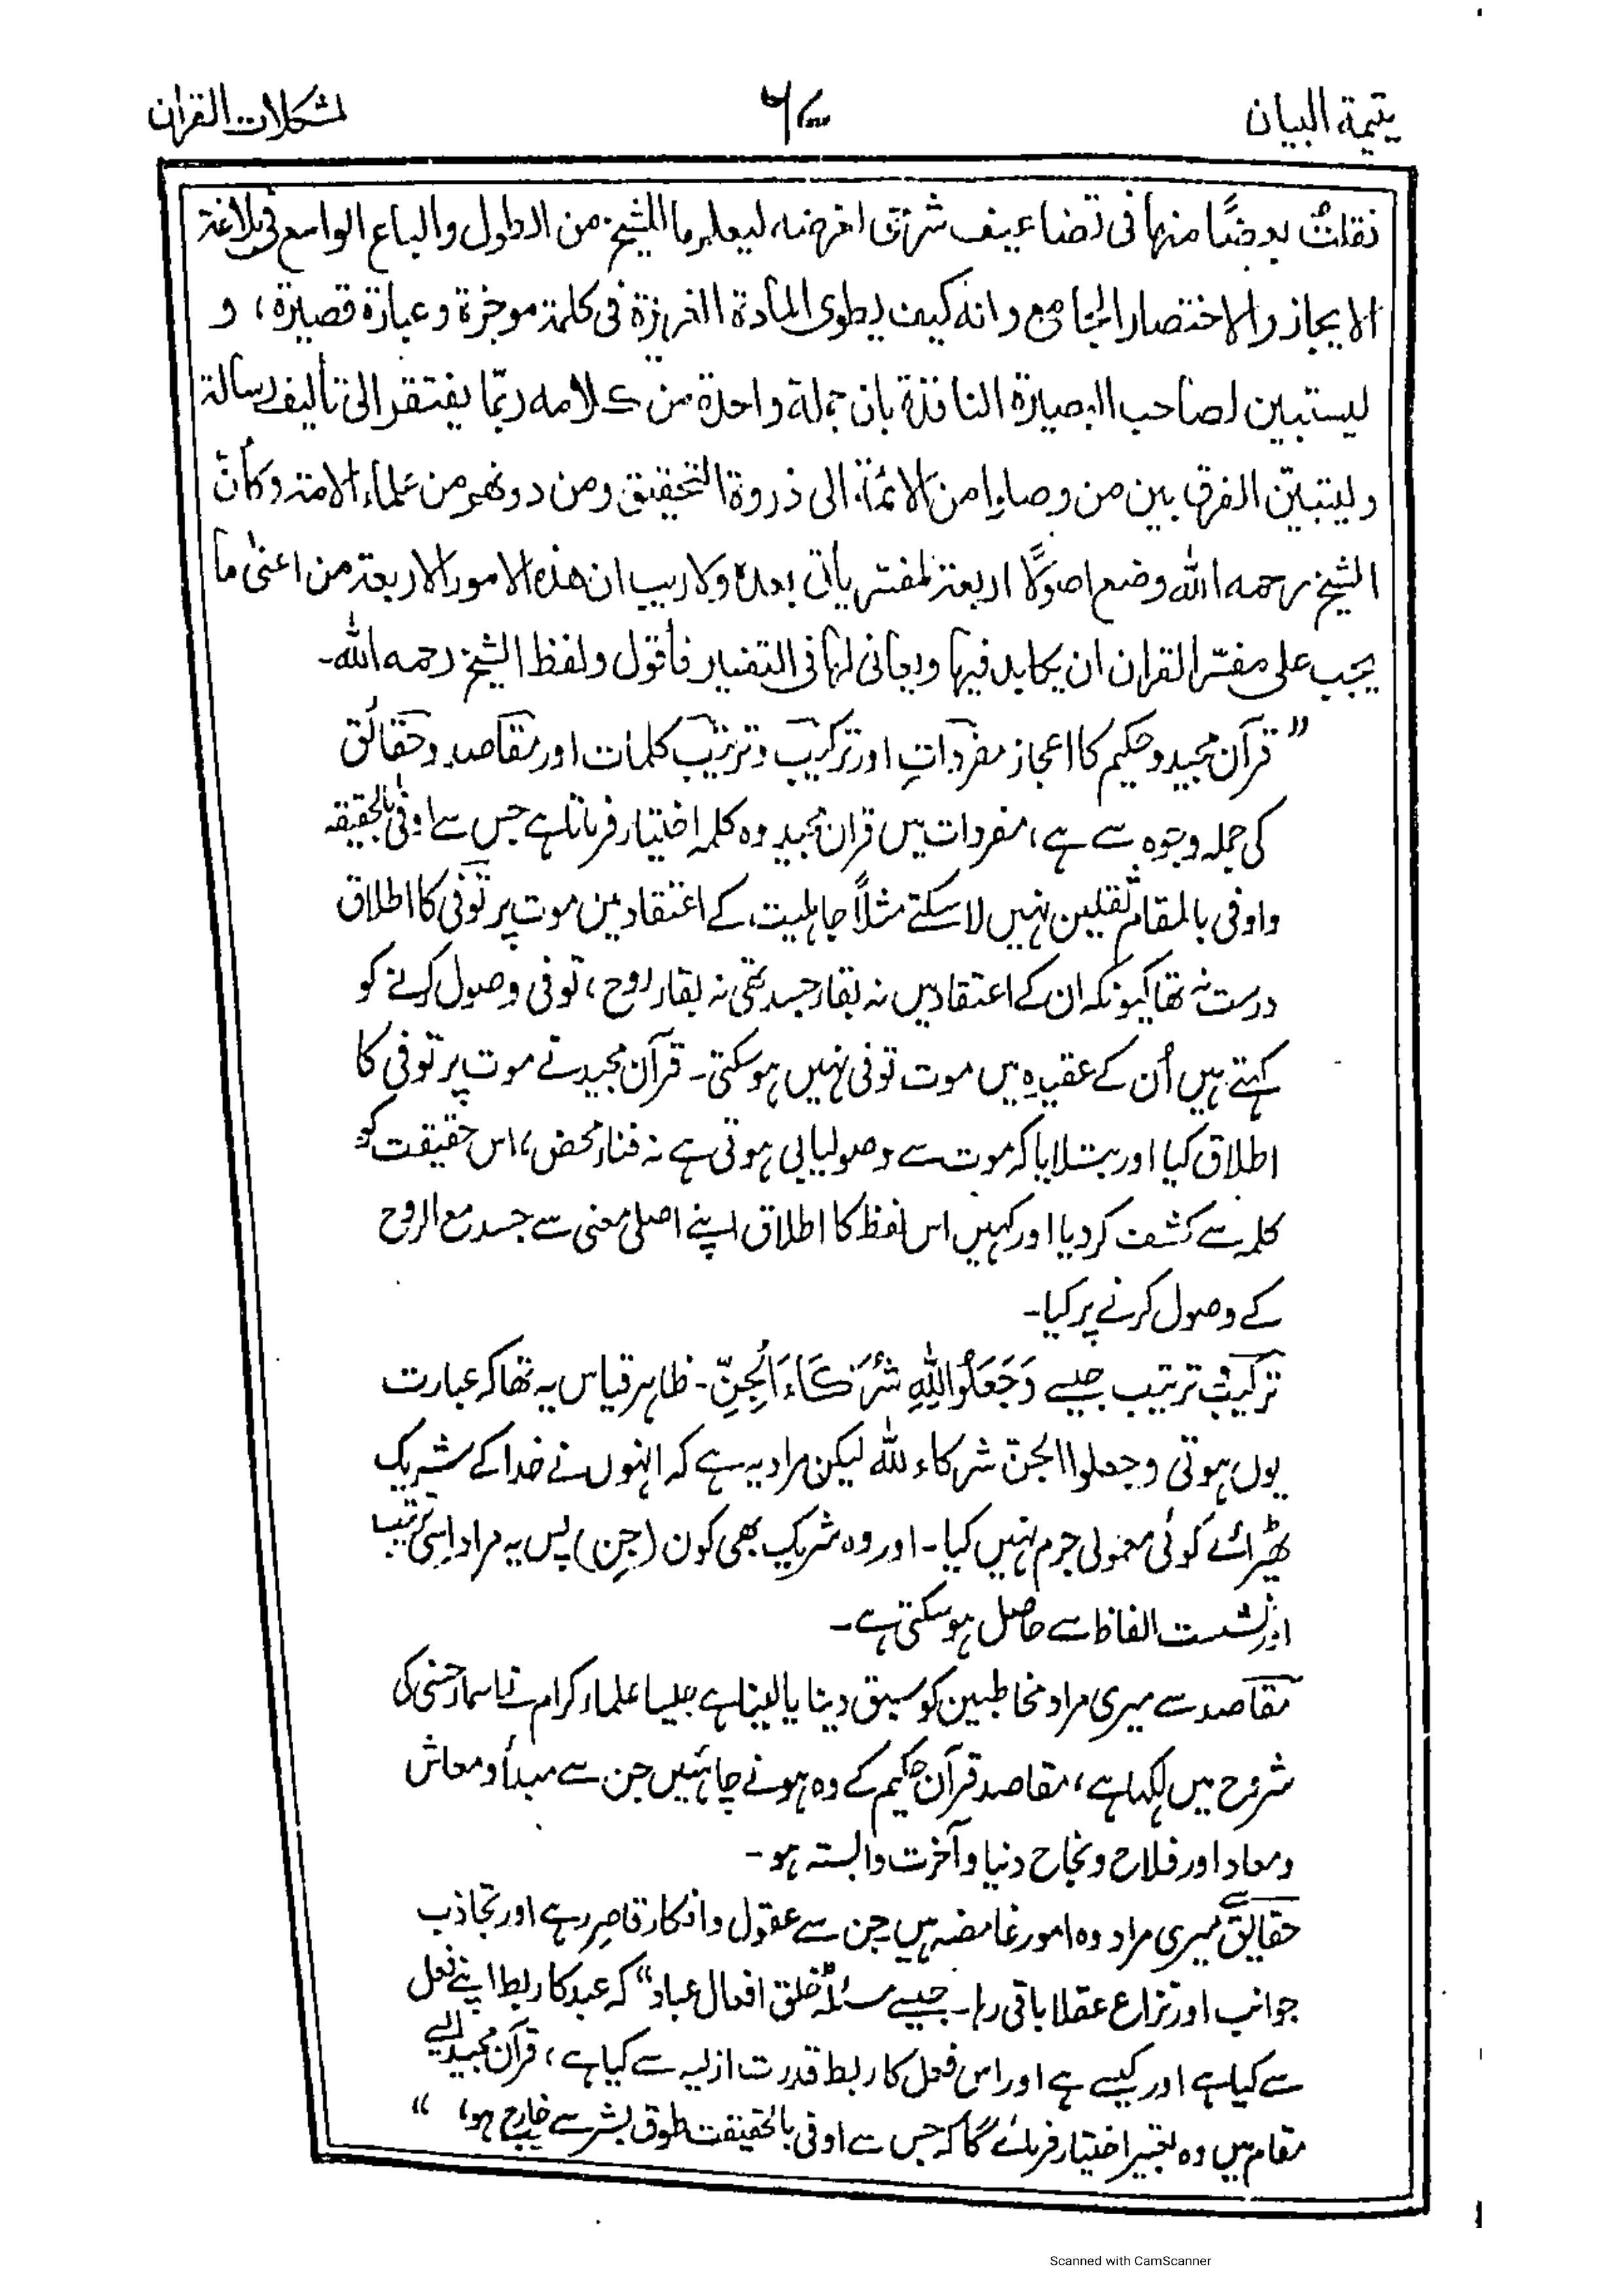 يتيمة البيان
۷۶
لمشكلات القران
نقلتُ بعضًا منها فى تضاعيف شرح غرضه، ليعلم ما للشيخ من الطول والباع الواسع فى بلاغة
الايجاز والاختصار الجامع وانه كيف يطوى المادة الغزيرة فى كلمة موجزة وعبارة قصيرة، و
ليستبين لصاحب البصيرة النافذة بان جملة واحدة من كلامه ربّما يفتقر الى تأليف رسالة
وليتبيّن الفرق بين من وصلوا من الائمة الى ذروة التحقيق ومن دونهم من علماء الامة وكأنّ
الشيخ رحمه الله وضع اصولًا اربعة لمفسّر يأتى بعده ولا ريب ان هذه الامور الاربعة من اعنىٰ ما
يجب على مفسّر القران ان يكابد فيها ويعانى لها فى التفسير فأقول ولفظ الشيخ رحمه الله۔
”قرآن مجید و حکیم کا اعجاز مفردات اور ترکیب و ترتیب کلمات اور مقاصد و حقائق
کی جملہ وجوہ سے ہے، مفردات میں قران مجید وہ کلمہ اختیار فرماتا ہے جس سے اوفیٰ بالحقیقہ
واوفی بالمقام ثقلین نہیں لا سکتے مثلاً جاہلیت کے اعتقاد میں موت پر توفی کا اطلاق
درست نہ تھا کیونکہ ان کے اعتقاد میں نہ بقاء جسد تھی نہ بقاء روح، توفی وصول کرنے کو
کہتے ہیں اُن کے عقیدہ میں موت توفی نہیں ہو سکتی۔ قرآن مجید نے موت پر توفی کا
اطلاق کیا اور بتلایا کہ موت سے وصولیابی ہوتی ہے نہ فناء محض، اس حقیقت کو
کلمہ سے کشف کر دیا اور کہیں اس لفظ کا اطلاق اپنے اصلی معنی سے جسد مع الروح
کے وصول کرنے پر کیا۔
ترکیب و ترتیب جیسے وَجَعَلُوْا لِلّٰهِ شُرَكَاءَ الْجِنَّ۔ ظاہر قیاس یہ تھا کہ عبارت
یوں ہوتی وجعلوا الجنّ شركاء لله لیکن مراد یہ ہے کہ انہوں نے خدا کے شریک
ٹھیرائے کوئی معمولی جرم نہیں کیا۔ اور وہ شریک بھی کون (جن) پس یہ مراد اسی ترتیب
اور نشست الفاظ سے حاصل ہو سکتی ہے۔
مقاصد سے میری مراد مخاطبین کو سبق دینا یا لینا ہے جیسا علماء کرام نے اسماء حسنی کی
شروح میں لکھا ہے، مقاصد قرآن حکیم کے وہ ہونے چاہئیں جن سے مبدأ و معاش
ومعاد اور فلاح و نجاح دنیا و آخرت وابستہ ہو۔
حقایق سے میری مراد وہ امور غامضہ ہیں جن سے عقول و افکار قاصر رہے اور تجاذب
جوانب اور نزاع عقلا باقی رہا۔ جیسے مسئلۂ خلق افعال عباد“ کہ عبد کا ربط اپنے فعل
سے کیا ہے اور کیسے ہے اور اس فعل کا ربط قدرت ازلیہ سے کیا ہے، قرآن مجید ایسے
مقام میں وہ تعبیر اختیار فرمائے گا کہ جس سے اوفی بالحقیقت طوق بشر سے خارج ہو، “
Scanned with CamScanner